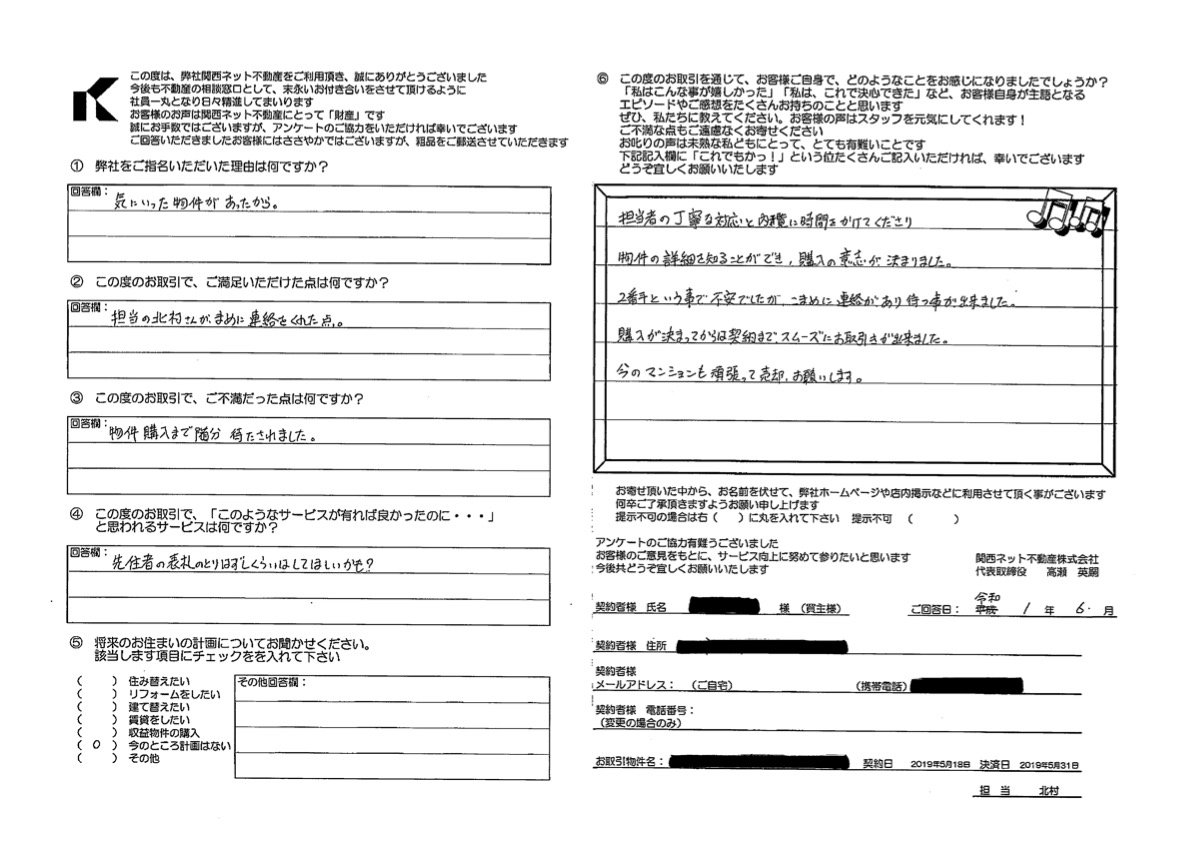 この度は、弊社関西ネット不動産をご利用頂き、誠にありがとうございました
今後も不動産の相談窓口として、末永いお付き合いをさせて頂けるように
社員一丸となり日々精進してまいります
お客様のお声は関西ネット不動産にとって「財産」です
誠にお手数ではございますが、アンケートのご協力をいただければ幸いでございます
ご回答いただきましたお客様にはささやかではございますが、粗品をご郵送させていただきます
① 弊社をご指名いただいた理由は何ですか？
回答欄：
気にいった物件があったから。
② この度のお取引で、ご満足いただけた点は何ですか？
回答欄：
担当の北村さんが、まめに連絡をくれた点。
③ この度のお取引で、ご不満だった点は何ですか？
回答欄：
物件購入まで随分 待たされました。
④ この度のお取引で、「このようなサービスが有れば良かったのに・・・」
と思われるサービスは何ですか？
回答欄：
先住者の表札のとりはずしくらいはしてほしいかも？
⑤ 将来のお住まいの計画についてお聞かせください。
該当します項目にチェックをを入れて下さい
（　　）住み替えたい
（　　）リフォームをしたい
（　　）建て替えたい
（　　）賃貸をしたい
（　　）収益物件の購入
（ ○ ）今のところ計画はない
（　　）その他
その他回答欄：
⑥ この度のお取引を通じて、お客様ご自身で、どのようなことをお感じになりましたでしょうか？
「私はこんな事が嬉しかった」「私は、これで決心できた」など、お客様自身が主語となる
エピソードやご感想をたくさんお持ちのことと思います
ぜひ、私たちに教えてください。お客様の声はスタッフを元気にしてくれます！
ご不満な点もご遠慮なくお寄せください
お叱りの声は未熟な私どもにとって、とても有難いことです
下記記入欄に「これでもかっ！」という位たくさんご記入いただければ、幸いでございます
どうぞ宜しくお願いいたします
担当者の丁寧な対応と内覧に時間をかけてくださり
物件の詳細を知ることができ、購入の意志が決まりました。
2番手という事で不安でしたが、こまめに連絡があり待つ事が出来ました。
購入が決まってからは契約まで、スムーズにお取引きが出来ました。
今のマンションも頑張って売却、お願いします。
お寄せ頂いた中から、お名前を伏せて、弊社ホームページや店内掲示などに利用させて頂く事がございます
何卒ご了承頂きますようお願い申し上げます
提示不可の場合は右（　　）に丸を入れて下さい　提示不可　（　　　）
アンケートのご協力有難うございました
お客様のご意見をもとに、サービス向上に努めて参りたいと思います
今後共どうぞ宜しくお願いいたします
関西ネット不動産株式会社
代表取締役　高瀬　英嗣
契約者様 氏名　様 （買主様）
ご回答日：令和 平成 1 年 6 月
契約者様 住所
契約者様
メールアドレス：　（ご自宅）　（携帯電話）
契約者様 電話番号：
（変更の場合のみ）
お取引物件名：　契約日　2019年5月18日　決済日　2019年5月31日
担　当　北村